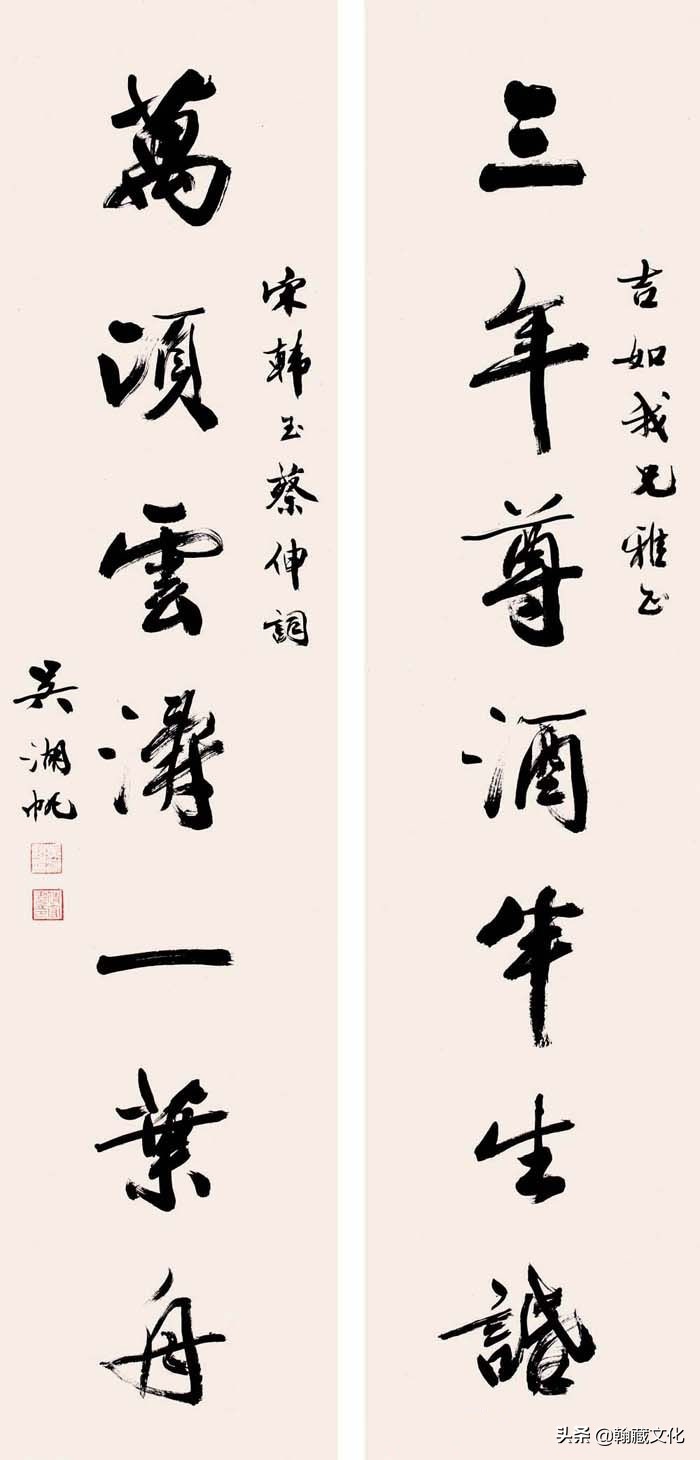 吉如我兄雅正
三年尊酒半生諙
宋韓玉蔡伸詞
萬頃雲濤一葉舟
吴湖帆
头条 @翰藏文化